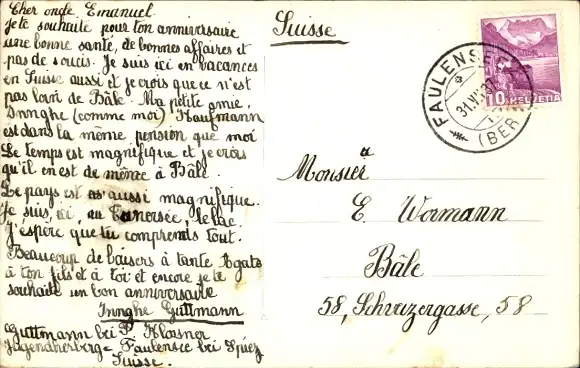 Cher oncle Emanuel.
Je te souhaite pour ton anniversaire
une bonne santé, de bonnes affaires et
pas de soucis. Je suis ici en vacances
en Suisse aussi et je crois que ce n'est
pas loin de Bâle. Ma petite amie,
Innghe (comme moi) Kaufmann
est dans la même pension que moi
Le temps est magnifique et je crois
qu'il en est de même à Bâle.
Le pays est aussi magnifique.
Je suis, ici, au le lac.
J'espère que tu comprends tout.
Beaucoup de baisers à tante Agate
à ton fils et à toi et encore je te
souhaite un bon anniversaire
Innghe Guttmann
Guttmann bei Klosner
Jugendherberge Faulensee bei Spiez
Suisse.
Suisse
FAULENSEE
31.VII
(BER
10 HELVETIA
à
Monsieur
E. Wormann
Bâle
58, Schweizergasse, 58